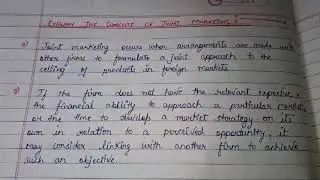 EXPLAIN THE CONCEPT OF JOINT MARKETING
Joint marketing occurs when arrangements are made with
other firms to formulate a joint approach to the
selling of products in foreign markets.
If the firm does not have the relevant expertise &
the financial ability to approach a particular market
or the time to develop a market strategy on its
own in relation to a perceived opportunity, it
may consider linking with another firm to achieve
such an objective.